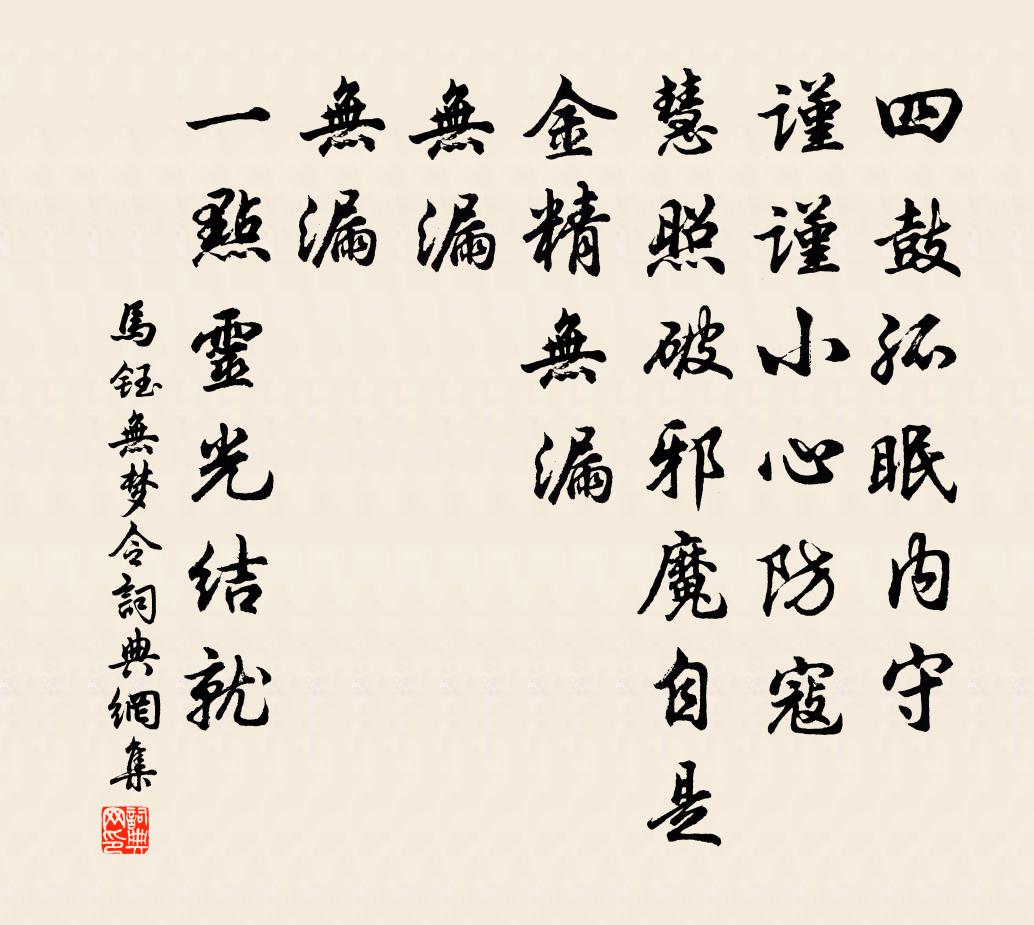 四鼓孤眠内守
谨谨小心防寇
慧照破邪魔自是
金精無漏
無漏
無漏
一點靈光結就
馬鈺無梦令詞典網集
詞典網印